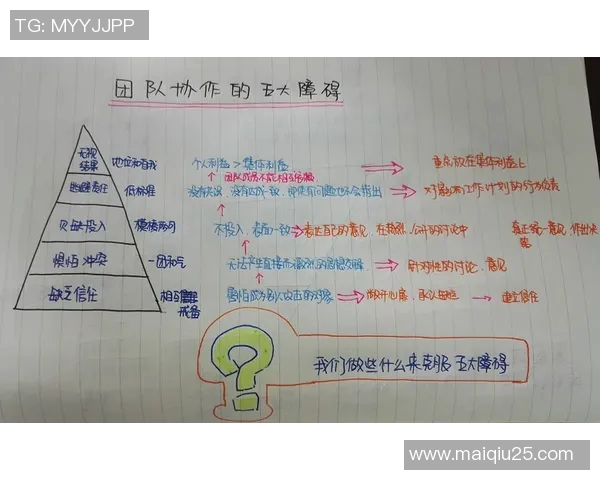 TG: MYYJJPP
团队协作的五大障碍
无视结果 地位和自我 个人利益 > 集体利益 重点放在集体利益上
团队成员不能相互
逃避责任 低标准 没有达成一致,即使有问题也不会指出 对影响工作计划的行为负责
欠缺投入 模棱两可 不投入,表面一致 表达自己的意见,在激烈、公开的讨论中 真正统一意见,作出决定
惧怕冲突 一团和气 无法产生直接而激烈的思想交锋 针对性的讨论、意见
缺乏信任 相互戒备 害怕成为别人攻击的对象 敞开心扉,承认缺点 建立信任
我们做些什么来克服五大障碍
www.maiqiu25.com